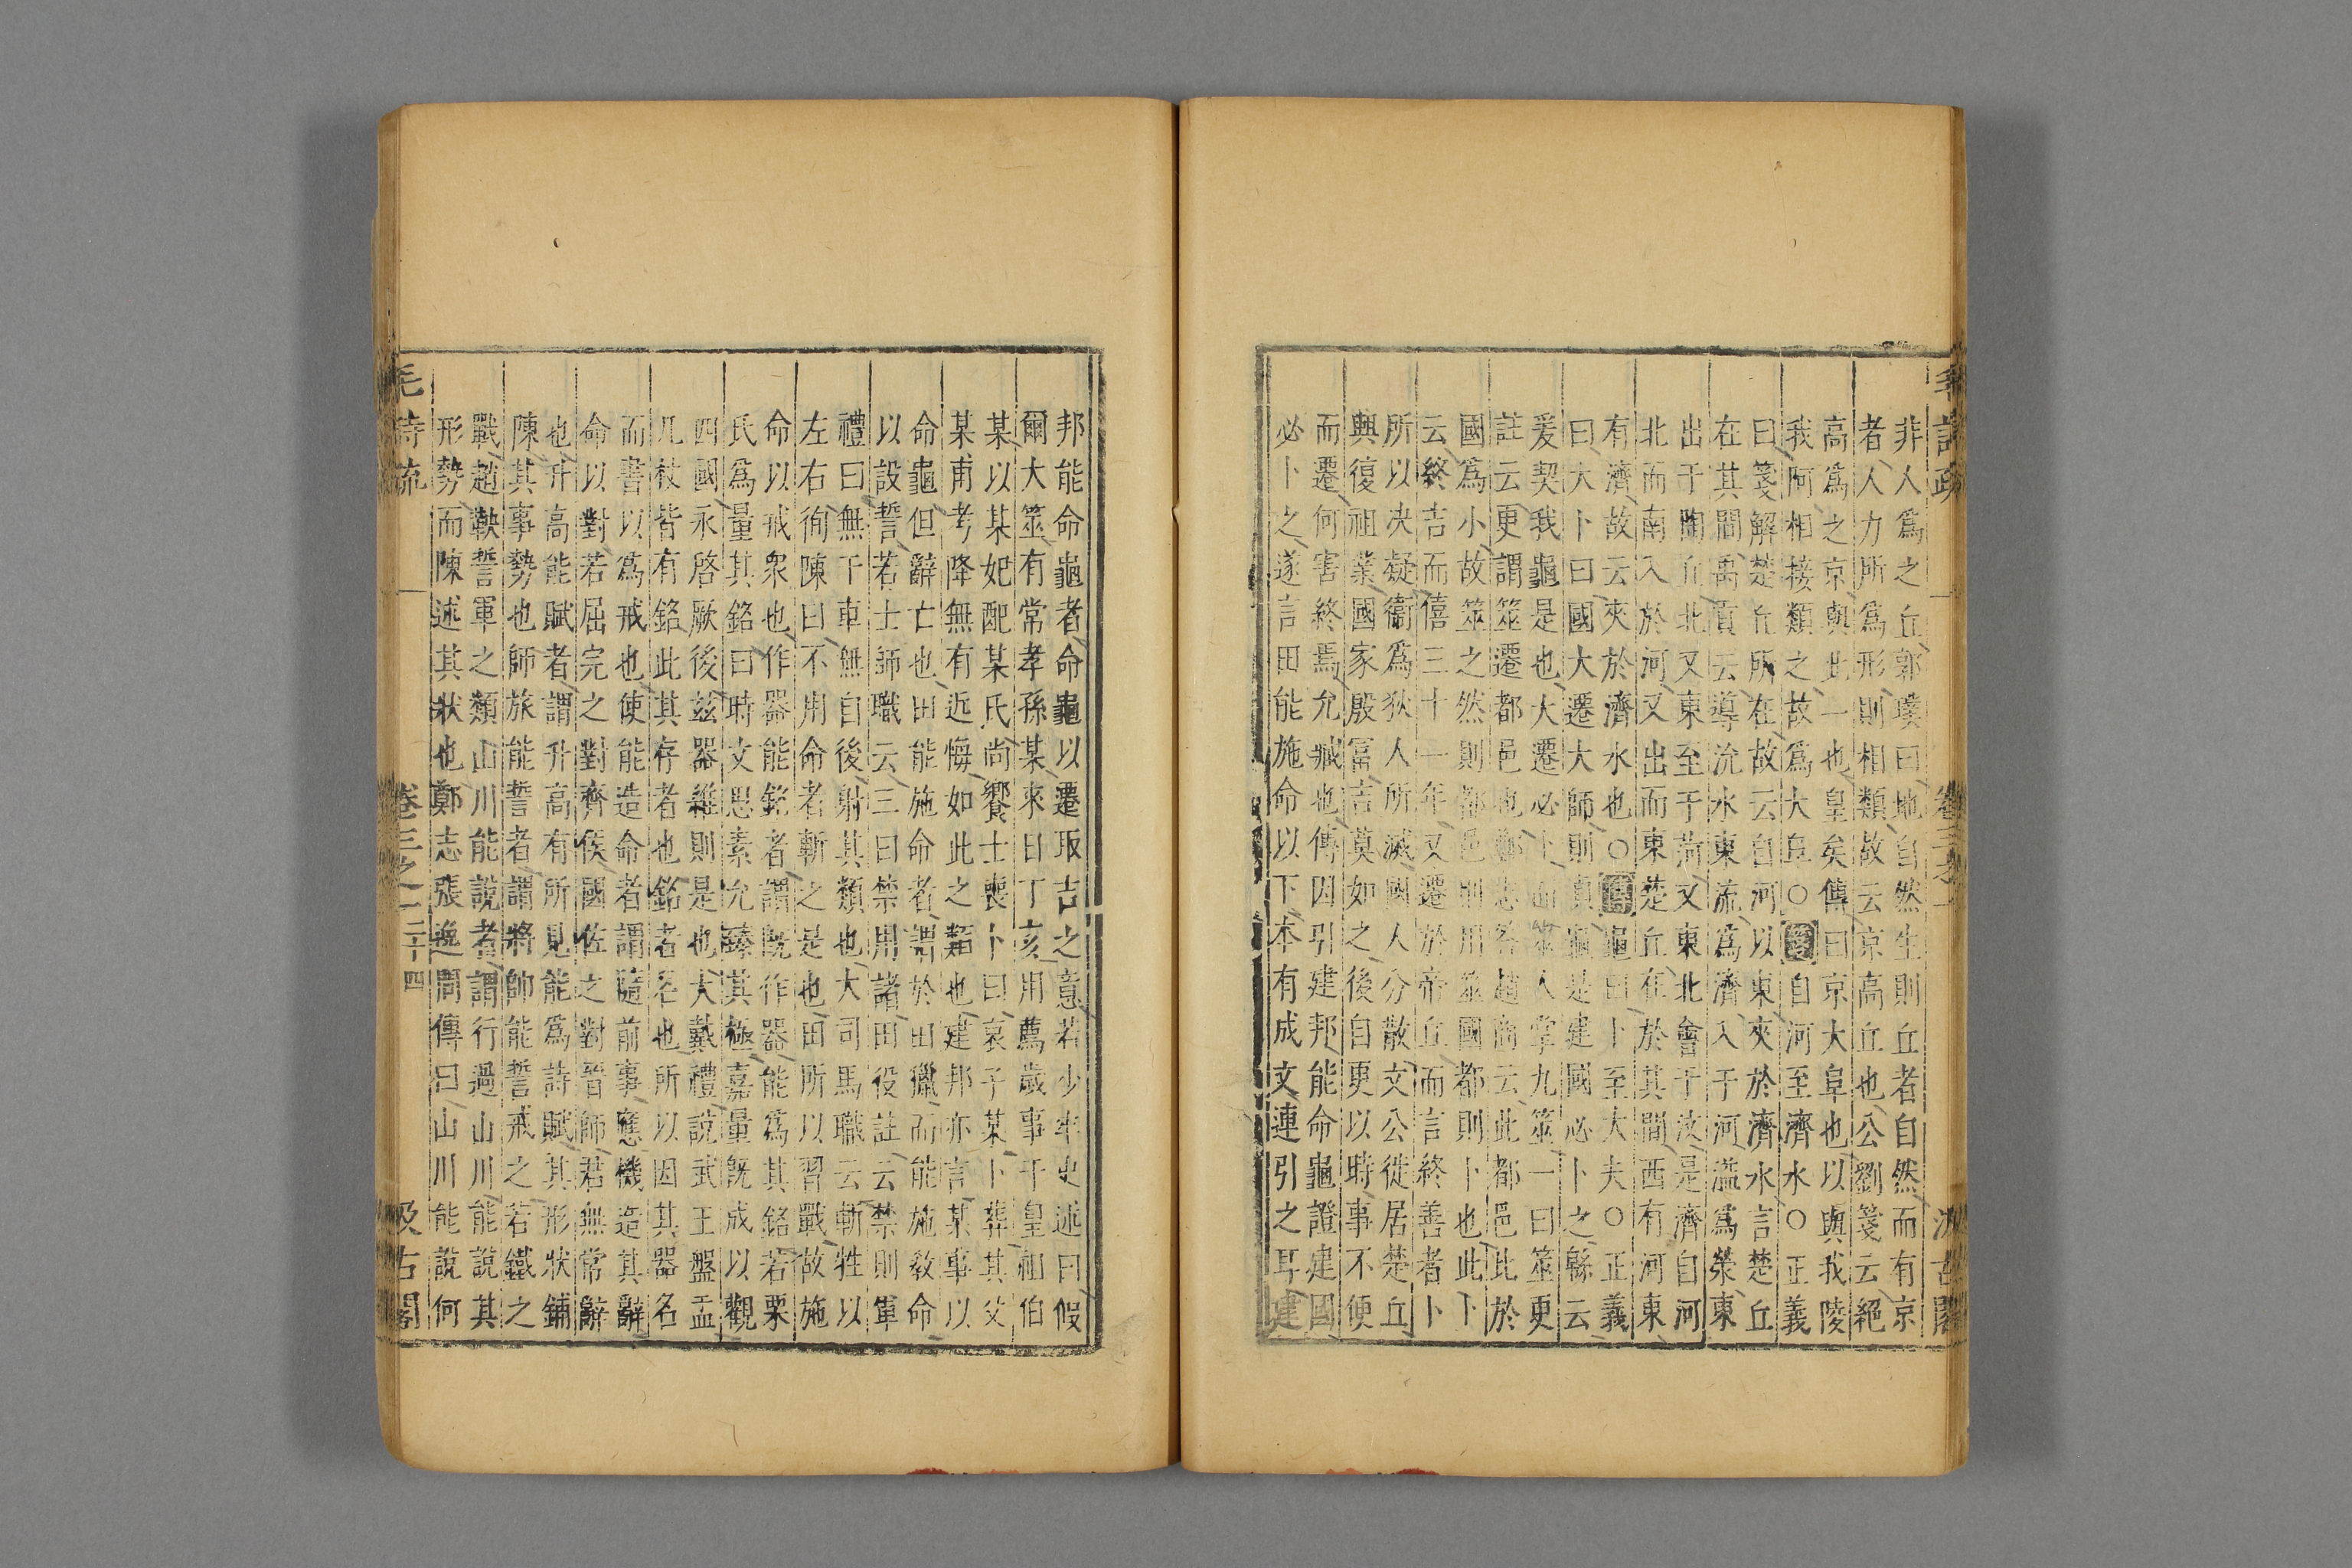 毛詩疏 卷三之一 汲古閣
非人爲之丘郭璞曰地自然生則丘者自然而有京
者人力所爲形則相類故云京高丘也公劉箋云絕
高爲之京與此一也皇矣傳曰京大阜也以與我陵
我阿相接類之故爲大阜○箋自河至濟水○正義
曰箋解楚丘所在故云自河以東夾於濟水言楚丘
在其間禹貢云導沇水東流爲濟入于河溢爲滎東
出于陶丘北又東至于菏又東北會于汶是濟自河
北而南入於河又出而東楚丘在於其間西有河東
有濟故云夾於濟水也○傳龜曰卜至大夫○正義
曰大卜曰國大遷大師則貞龜是建國必卜之緜云
爰契我龜是也大遷必卜而筮人掌九筮一曰筮更
註云更謂筮遷都邑也鄭志答趙商云此都邑比於
國爲小故筮之然則都邑則用筮國都則卜也此卜
云終吉而僖三十一年又遷於帝丘而言終善者卜
所以決疑衛爲狄人所滅國人分散文公徙居楚丘
興復祖業國家殷富吉莫如之後自更以時事不便
而遷何害終焉允臧也傳因引建邦能命龜證建國
必卜之遂言田能施命以下本有成文連引之耳建
邦能命龜者命龜以遷取吉之意若少牢史述曰假
爾大筮有常孝孫某來日丁亥用薦歲事于皇祖伯
某以某妃配某氏尚饗士喪卜曰哀子某卜葬其父
某甫考降無有近悔如此之類也建邦亦言某事以
命龜但辭亡也田能施命者謂於田獵而能施教命
以設誓若士師職云三曰禁用諸田役註云禁則軍
禮曰無干車無自後射其類也大司馬職云斬牲以
左右徇陳曰不用命者斬之是也田所以習戰故施
命以戒衆也作器能銘者謂旣作器能爲其銘若栗
氏爲量其銘曰時文思索允臻其極嘉量旣成以觀
四國永啓厥後兹器維則是也大戴禮說武王盤盂
几杖皆有銘此其存者也銘者名也所以因其器名
而書以爲戒也使能造命者謂隨前事應機造其辭
命以對若屈完之對齊侯國佐之對晉師君無常辭
也升高能賦者謂升高有所見能爲詩賦其形狀鋪
陳其事勢也師旅能誓者謂將帥能誓戒之若鐵之
戰趙鞅誓軍之類山川能說者謂行過山川能說其
形勢而陳述其狀也鄭志張逸問傳曰山川能說何
毛詩疏 卷三之一 二十四 汲古閣